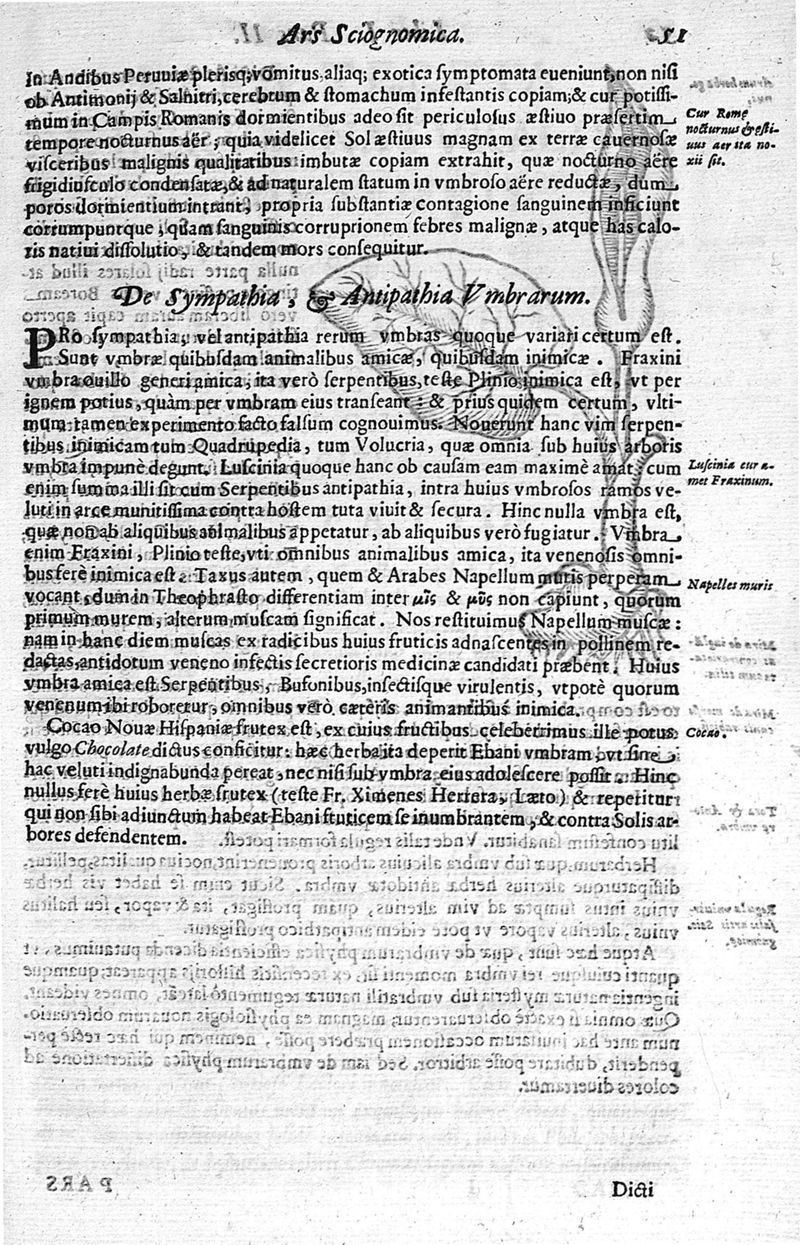 Ars Sciognomica. 51
In Andibus Peruuiæ plerisq; vomitus, aliaq; exotica symptomata eueniunt, non nisi
ob Antimonij & Salnitri, cerebrum & stomachum infestantis copiam; & cur potissi-
mum in Campis Romanis dormientibus adeo sit periculosus æstiuo præsertim
tempore nocturnus aër; quia videlicet Sol æstiuus magnam ex terræ cauernosæ
visceribus malignis qualitatibus imbutæ copiam extrahit, quæ nocturno aëre
frigidiusculo condensatæ, & ad naturalem statum in vmbroso aëre reductæ, dum
poros dormientium intrant, propria substantiæ contagione sanguinem inficiunt
corrumpuntque; quam sanguinis corruprionem febres malignæ, atque has calo-
ris natiui dissolutio, & tandem mors consequitur.
Cur Romę
nocturnus & ęsti-
uus aer ita no-
xii sit.
De Sympathia, & Antipathia Vmbrarum.
PRo sympathia, vel antipathia rerum vmbras quoque variari certum est.
Sunt vmbræ quibusdam animalibus amicæ, quibusdam inimicæ. Fraxini
vmbra nullo generi amica; ita verò serpentibus, teste Plinio, inimica est, vt per
ignem potius, quàm per vmbram eius transeant: & prius quidem certum, vlti-
mum tamen experimento facto falsum cognouimus. Nouerunt hanc vim serpen-
tibus inimicam tum Quadrupedia, tum Volucria, quæ omnia sub huius arboris
vmbra impunè degunt. Luscinia quoque hanc ob causam eam maximè amat; cum
enim summa illi sit cum Serpentibus antipathia, intra huius vmbrosos ramos ve-
luti in arce munitissima contra hostem tuta viuit & secura. Hinc nulla vmbra est,
quæ non ab aliquibus animalibus appetatur, ab aliquibus verò fugiatur. Vmbra
enim Fraxini, Plinio teste, vti omnibus animalibus amica, ita venenosis omni-
bus ferè inimica est. Taxus autem, quem & Arabes Napellum muris perperam
vocant, dum in Theophrasto differentiam inter μῖς & μῦς non capiunt, quorum
primum murem, alterum muscam significat. Nos restituimus Napellum muscæ:
nam in hanc diem muscas ex radicibus huius fruticis adnascentes in pollinem re-
dactas, antidotum veneno infectis secretioris medicinæ candidati præbent. Huius
vmbra amica est Serpentibus, Bufonibus, insectisque virulentis, vtpotè quorum
venenum ibi roboretur, omnibus verò cæteris animantibus inimica.
Luscinia cur a-
met Fraxinum.
Napelles muris
Cocao Nouæ Hispaniæ frutex est, ex cuius fructibus celeberrimus ille potus
vulgo Chocolate dictus conficitur: hæc herba ita deperit Ebani vmbram, vt sine
hac veluti indignabunda pereat, nec nisi sub vmbra eius adolescere possit. Hinc
nullus ferè huius herbæ frutex (teste Fr. Ximenes Herrera, Læto) & repetitur
qui non sibi adiunctum habeat Ebani fruticem se inumbrantem, & contra Solis ar-
bores defendentem.
Cocao.
Dicti